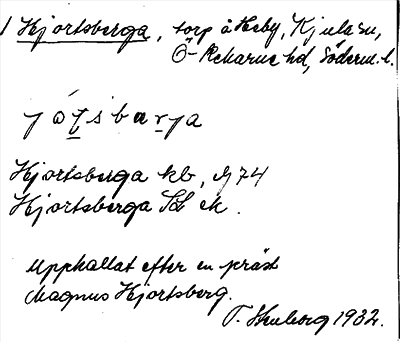 1 Hjortsberga, torp å Heby, Kjula sn,
Ö-Rekarne hd, Söderm. l.
jótsbarja
Hjortsberga kb, M 74
Hjortsberga Tbl ek.
Uppkallat efter en präst
Magnus Hjortsberg.
T. 1932.